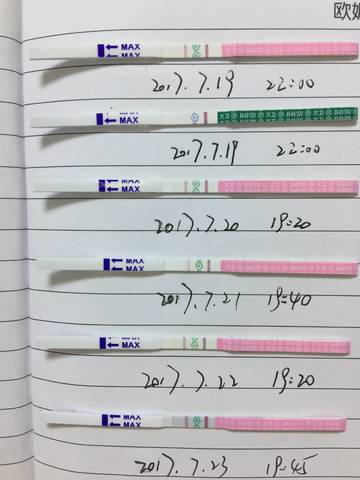 欧妮
MAX
MAX
2017.7.19 22:00
MAX
DAVID 大卫 DAVID 大卫 DAVID
2017.7.19 22:00
MAX
MAX
2017.7.20 19:20
MAX
MAX
2017.7.21 19:40
MAX
MAX
2017.7.22 19:20
MAX
MAX
2017.7.23 19:45